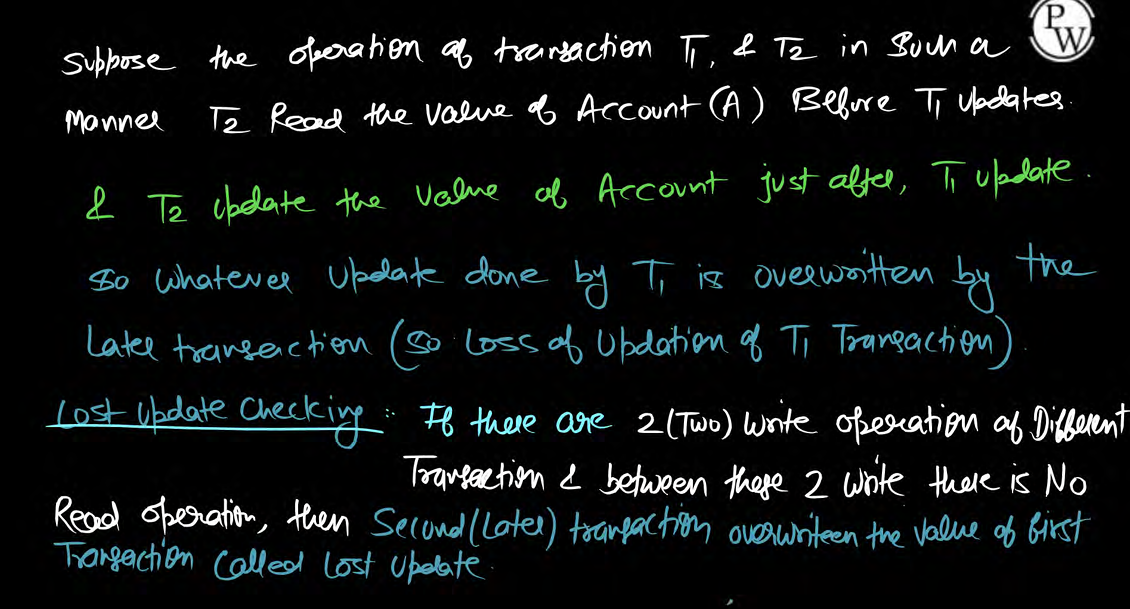 PW
Suppose the operation of transaction T1, & T2 in such a
Manner T2 Read the value of Account (A) Before T1 updates.
& T2 update the value of Account just after, T1 update.
so whatever update done by T1 is overwritten by the
Later transaction (so Loss of Updation of T1 Transaction).
Lost update checking :- If there are 2 (Two) Write operation of Different
Transaction & between these 2 write there is No
Read operation, then Second (Later) transaction overwriteen the value of first
Transaction called lost update.